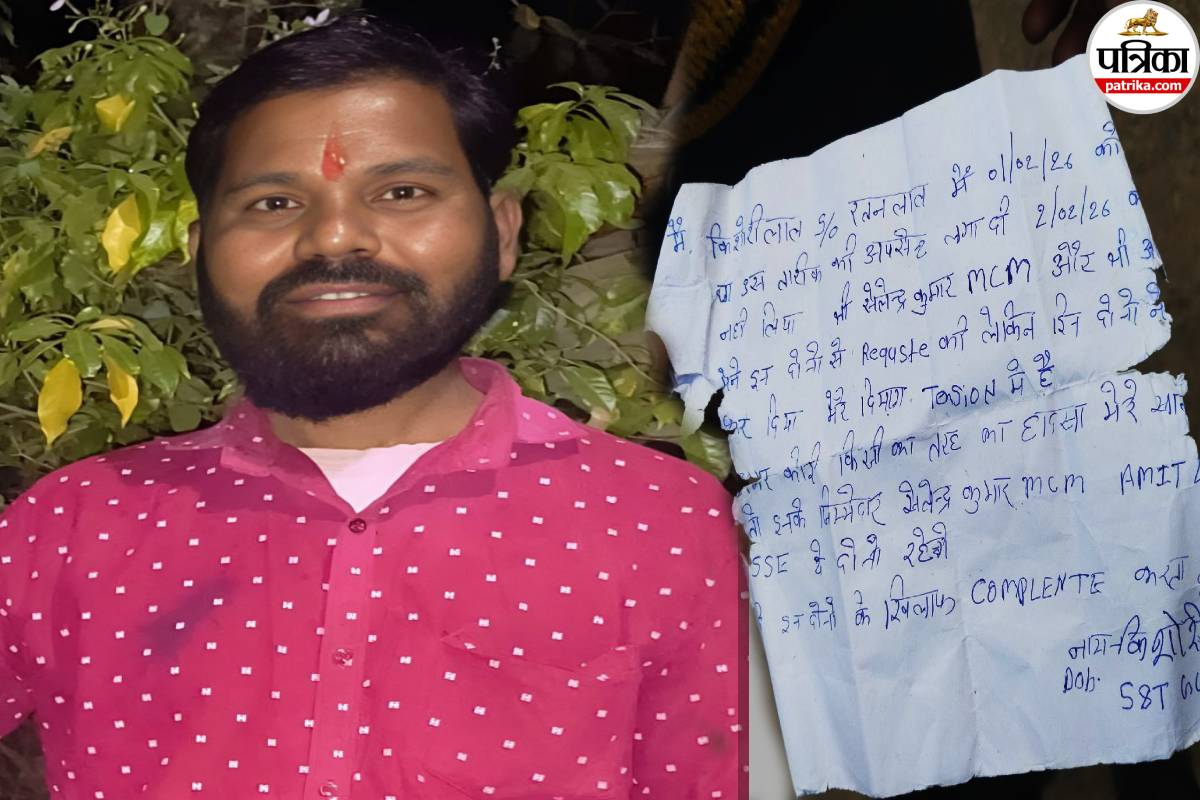 पत्रिका
patrika.com
मैं. किशोरी लाल S/o रतन लाल मैं 01/02/26 को
इस तारीक की अपसेन्ट लगा दी 2/02/26
नही लिया भी सैलेन्द्र कुमार MCM और भी
मैने इन दोनो से Requste की लेकिन इन दोनो ने
कर दिया मेरे दिमाग. TENSION में है
अगर कोई किसी का तरह का हादसा मेरे साथ
तो इनके जिम्मेदार सैलेन्द्र कुमार. MCM AMIT
SSE ये दोनो रहेंगे
इन दोनो के खिलाफ COMPLENTE करता
नाम-किशोरी
Dob.
S&T